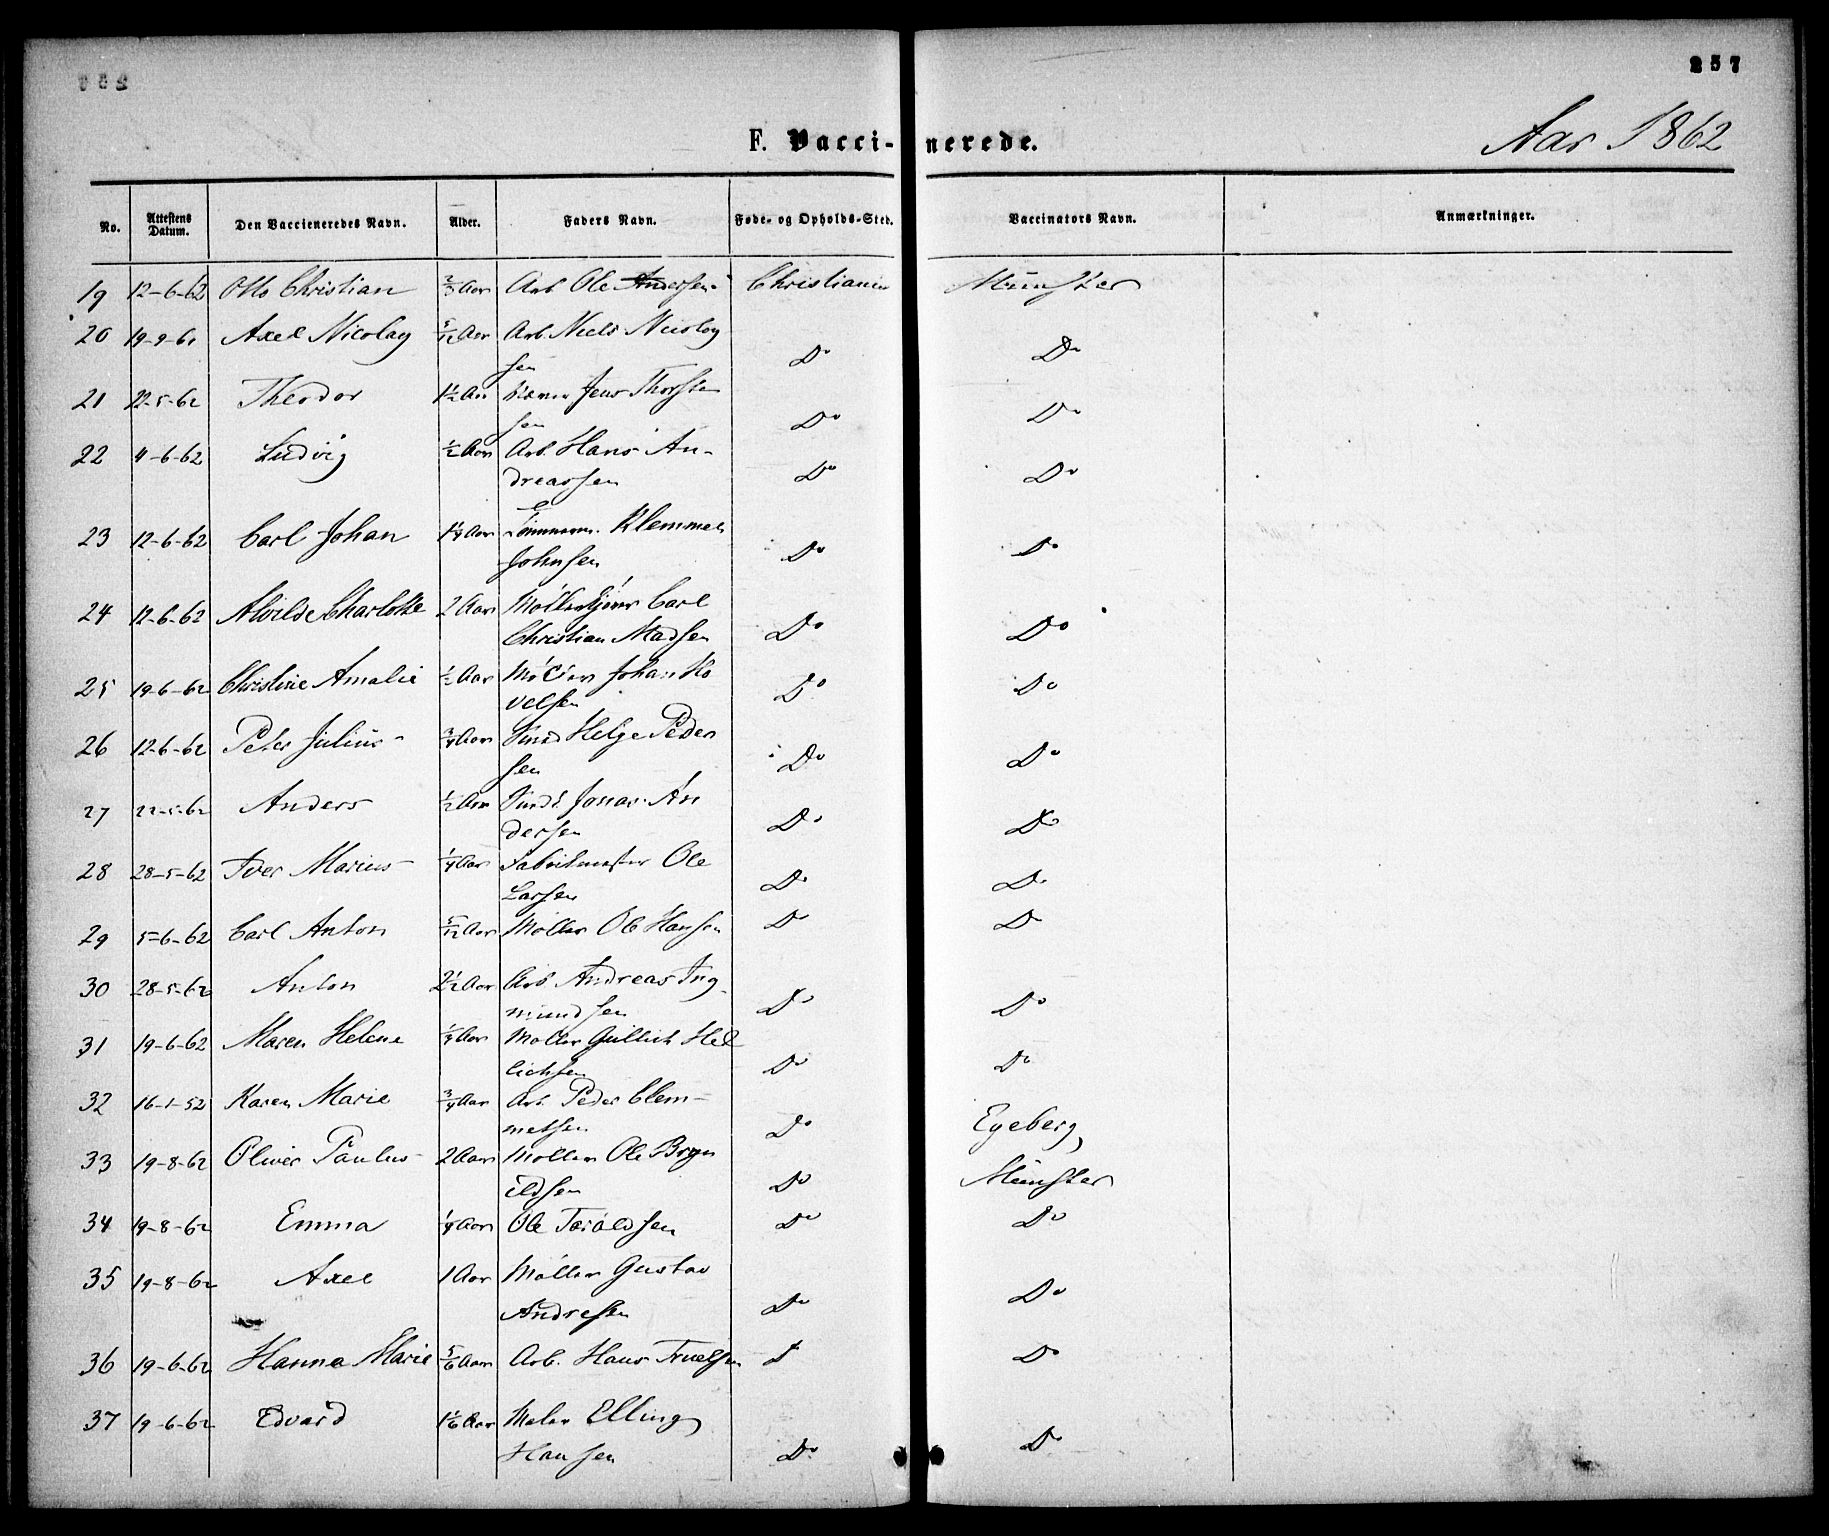 257
F. Vaccienerede.
Aar 1862
No. Attestens Datum. Den Vaccieneredes Navn. Alder. Faders Navn. Føde- og Opholds-Sted. Vaccinators Navn. Anmærkninger.
19 12-6-62 Otto Christian 2/3 Aar Arb Ole Andersen Christiania Münster
20 19-9-61 Axel Nicolay 5/12 Aar Arb. Niels Nicolay
sen Do Do
21 22-5-62 Theodor 1 1/2 Aar Jens Thorste
sen Do Do
22 4-6-62 Ludvig 1/2 Aar Arb. Hans An-
dreassen Do Do
23 12-6-62 Carl Johan 1 1/4 Aar Tømmerm. Klemmet
Johnsen Do Do
24 12-6-62 Alvilde Charlotte 2 Aar Møllersvend Carl
Christian Madsen Do Do
25 19-6-62 Christine Amalie 1/2 Aar Møller Johan Ho
velsen Do Do
26 12-6-62 Peter Julius 3/4 Aar Helge Peder
sen Do Do
27 22-5-62 Anders 1/2 Aar Jonas An
dersen Do Do
28 28-5-62 Iver Marius 1/4 Aar Fabrikmester Ole
Larsen Do Do
29 5-6-62 Carl Anton 5/12 Aar Møller Ole Hansen Do Do
30 28-5-62 Anton 2 1/2 Aar Arb Andreas Ing
mundsen Do Do
31 19-6-62 Maren Helene 1/4 Aar Møller Gullich Hel
lichsen Do Do
32 16-1-52 Karen Marie 3/4 Aar Arb. Peder Clem-
metsen Do Egeberg
33 19-8-62 Oliver Paulus 2 Aar Møller Ole Bryn
ildsen Do Münster
34 19-8-62 Emma 1/4 Aar Ole Taraldsen Do Do
35 19-8-62 Axel 1 Aar Møller Gustav
Andresen Do Do
36 19-6-62 Hanna Marie 5/6 Aar Arb. Hans Truelsen D Do
37 19-6-62 Edvard 1 1/6 Aar Maler Elling
Hansen Do Do